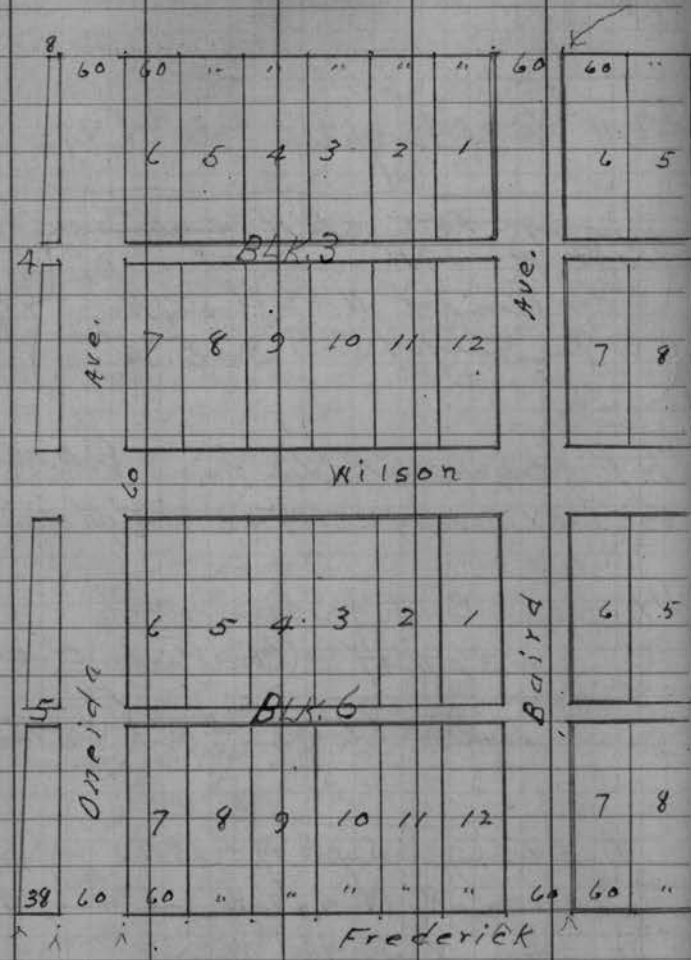 8
60 60 " " " " " 60 60 "
6 5 4 3 2 1 6 5
4 BLK. 3
Ave. Ave.
7 8 9 10 11 12 7 8
60 Wilson
6 5 4 3 2 1 6 5
5 BLK. 6
Oneida Baird
7 8 9 10 11 12 7 8
38 60 60 " " " " " 60 60 "
Frederick